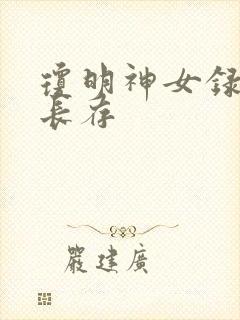 琼明神女録
長存
嚴建廣